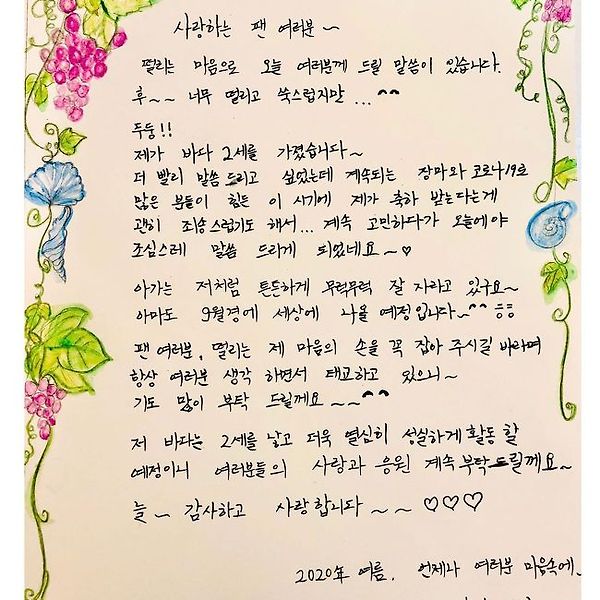 사랑하는 팬 여러분~
떨리는 마음으로 오늘 여러분께 드릴 말씀이 있습니다.
후~~ 너무 떨리고 쑥스럽지만 ...^^
두둥!!
제가 바다 2세를 가졌습니다~
더 빨리 말씀드리고 싶었는데 계속되는 장마와 코로나19로
많은 분들이 힘든 이 시기에 제가 축하 받는다는게
괜히 죄송스럽기도 해서... 계속 고민하다가 오늘에야
조심스레 말씀 드리게 되었네요~♡
아가는 저처럼 튼튼하게 무럭무럭 잘 자라고 있구요~
아마도 9월경에 세상에 나올 예정입니다~^^ ㅎㅎ
팬 여러분, 떨리는 제 마음의 손을 꼭 잡아 주시길 바라며
항상 여러분 생각 하면서 태교하고 있으니~
기도 많이 부탁 드릴께요~~^^
저 바다는 2세를 낳고 더욱 열심히 성실하게 활동 할
예정이니 여러분들의 사랑과 응원 계속 부탁드릴께요~
늘~ 감사하고 사랑합니다~~ ♡♡♡
2020年 여름, 언제나 여러분 마음속에~